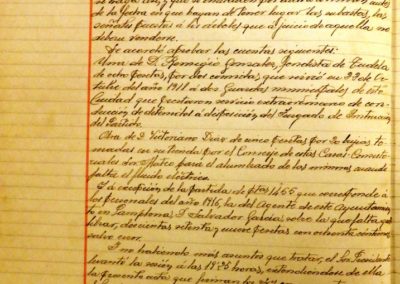 de la fecha en que hayan de tener lugar las subastas, los
señale facultar a los árboles que a juicio de aquella se
deban venderse.
Se acordó aprobar las cuentas siguientes:
Una de D. Remigio Gonzalez, fondista de Tudela
de ocho pesetas, por dos comidas, que sirvió en 23 de Oc
tubre del año 1911 a dos Guardas municipales de esta
Ciudad que prestaron servicio extraordinario de con-
ducción de detenidos a disposición del Juzgado de Instrucción
del Partido.
Otra de D. Victoriano Diaz de once pesetas por 20 bujias to-
madas en su tienda por el Conserje de estas Casas Consisto-
riales Don Mateo para el alumbrado de las mismas cuando
falta el fluido eléctrico.
a excepción de la partida de ptas 14,65 que corresponde á
los personales del año 1916, la del Agente de este Ayuntamien-
to en Pamplona D. Salvador Garcia, sobre lo que falta que
librar, doscientas setenta y nueve pesetas con ochenta céntimos
salvo error.
Y no habiendo más asuntos que tratar, el Sr. Presidente
levantó la sesión á las horas, extendiéndose de ella
la presente acta que firman los